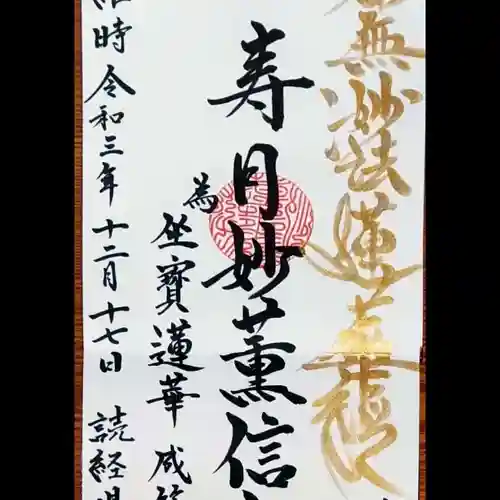 無妙法蓮華經
寿月妙薫信
為坐寶蓮華成
維時令和三年十二月十七日読経